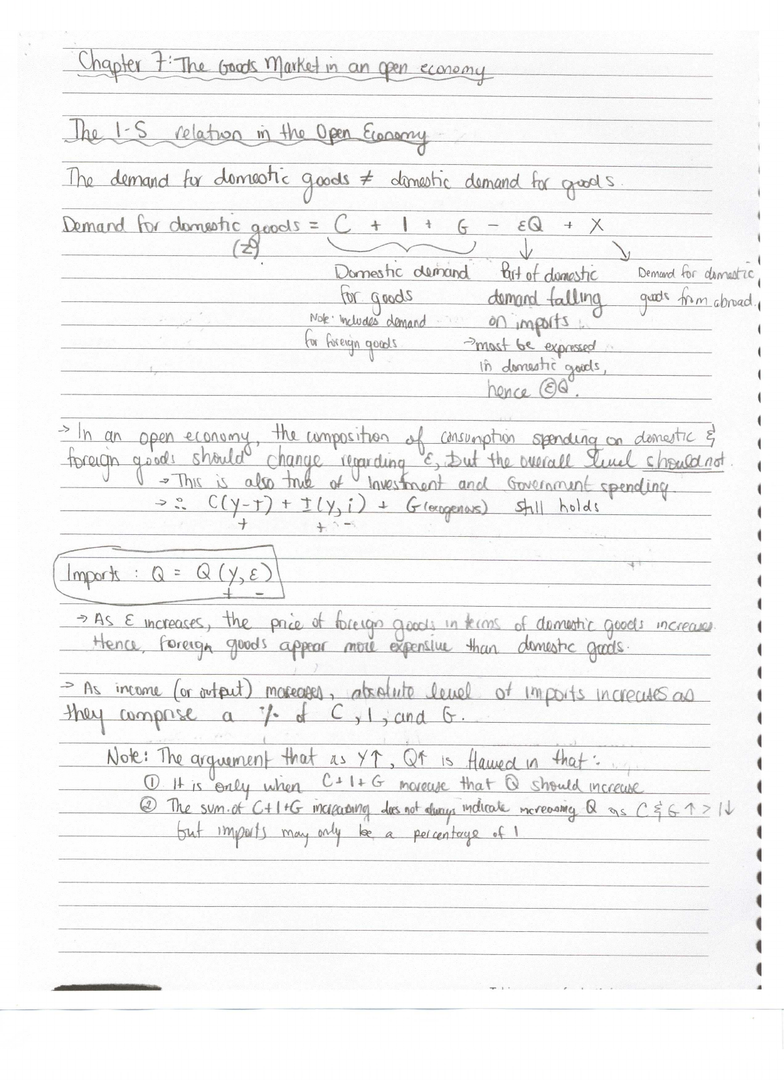 Chapter 7: The Goods Market in an open economy
The I-S relation in the Open Economy
The demand for domestic goods ≠ domestic demand for goods.
Demand for domestic goods = C + I + G - εQ + X
(Z)
Domestic demand for goods
Note: includes demand for foreign goods
Part of domestic demand falling on imports
→ must be expressed in domestic goods, hence εQ.
Demand for domestic goods from abroad.
→ In an open economy, the composition of consumption spending on domestic &
foreign goods should change regarding ε, but the overall level should not.
→ This is also true of Investment and Government spending.
→ ∴ C(Y-T) + I(Y, i) + G(exogenous) still holds
+ + -
Imports : Q = Q (Y, ε)
+ -
→ As ε increases, the price of foreign goods in terms of domestic goods increases.
Hence, foreign goods appear more expensive than domestic goods.
→ As income (or output) increases, absolute level of imports increases as
they comprise a % of C, I, and G.
Note: The arguement that as Y↑, Q↑ is flawed in that:
① It is only when C+I+G increase that Q should increase
② The sum of C+I+G increasing does not always indicate increasing Q as C & G ↑ > I↓
but imports may only be a percentage of I